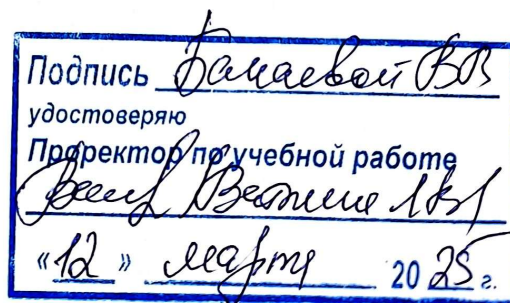 Подпись Бамаевой ВВ
удостоверяю
Проректор по учебной работе
«12» марта 2025 г.